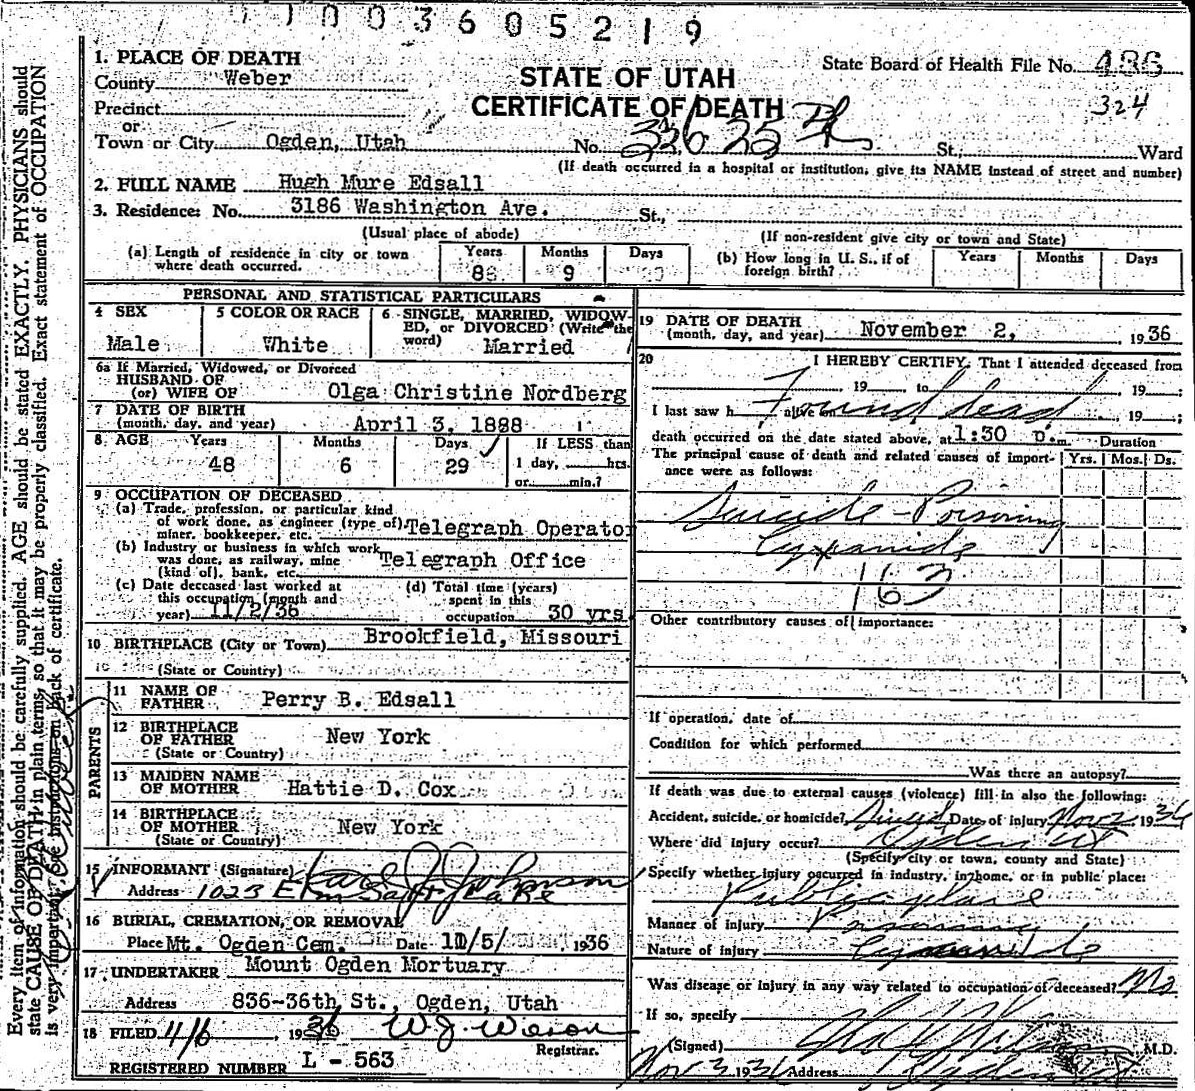 1003605219
1. PLACE OF DEATH
County Weber
Precinct
or
Town or City Ogden, Utah
STATE OF UTAH
CERTIFICATE OF DEATH
State Board of Health File No. 486
324
No. 326 25th St., Ward
(If death occurred in a hospital or institution, give its NAME instead of street and number)
2. FULL NAME Hugh Mure Edsall
3. Residence: No. 3186 Washington Ave. St.,
(Usual place of abode)
(If non-resident give city or town and State)
(a) Length of residence in city or town where death occurred.
Years Months Days
9
(b) How long in U. S., if of foreign birth?
Years Months Days
PERSONAL AND STATISTICAL PARTICULARS
4 SEX
Male
5 COLOR OR RACE
White
6 SINGLE, MARRIED, WIDOWED, or DIVORCED (Write the word)
Married
6a If Married, Widowed, or Divorced
HUSBAND OF
(or) WIFE OF Olga Christine Nordberg
7 DATE OF BIRTH
(month, day, and year) April 3, 1888
8 AGE Years Months Days If LESS than
48 6 29 1 day, hrs.
or min.?
9 OCCUPATION OF DECEASED
(a) Trade, profession, or particular kind
of work done, as engineer (type of),
miner, bookkeeper, etc. Telegraph Operator
(b) Industry or business in which work
was done, as railway, mine
(kind of), bank, etc. Telegraph Office
(c) Date deceased last worked at
this occupation (month and
year) 11/2/36
(d) Total time (years)
spent in this
occupation 30 yrs.
10 BIRTHPLACE (City or Town) Brookfield, Missouri
(State or Country)
PARENTS
11 NAME OF
FATHER Perry B. Edsall
12 BIRTHPLACE
OF FATHER New York
(State or Country)
13 MAIDEN NAME
OF MOTHER Hattie D. Cox
14 BIRTHPLACE
OF MOTHER New York
(State or Country)
15 INFORMANT (Signature) J. Johnson
Address 1023 Elm Salt Lake
16 BURIAL, CREMATION, OR REMOVAL
Place Mt. Ogden Cem. Date 11/5/ 1936
17 UNDERTAKER Mount Ogden Mortuary
Address 836-36th St., Ogden, Utah
18 FILED 4/6, 1936 W. J. Wilson
Registrar.
REGISTERED NUMBER L - 563
19 DATE OF DEATH
(month, day, and year) November 2, 1936
20 I HEREBY CERTIFY, That I attended deceased from
19 to 19 ;
I last saw h alive on Found dead 19 ;
death occurred on the date stated above, at 1:30 P.m.
Duration
The principal cause of death and related causes of importance were as follows:
Yrs. Mos. Ds.
Suicide - Poisoning
Cyanide
163
Other contributory causes of importance:
If operation, date of
Condition for which performed
Was there an autopsy?
If death was due to external causes (violence) fill in also the following:
Accident, suicide, or homicide? Suicide Date of injury Nov 2 1936
Where did injury occur? Ogden Ut
(Specify city or town, county and State)
Specify whether injury occurred in industry, in home, or in public place:
Public place
Manner of injury Poisoning
Nature of injury Cyanide
Was disease or injury in any way related to occupation of deceased? No
If so, specify
(Signed) M.D.
Nov 3 1936 Address Ogden Ut
Every item of information should be carefully supplied. AGE should be stated EXACTLY. PHYSICIANS should
state CAUSE OF DEATH in plain terms, so that it may be properly classified. Exact statement of OCCUPATION
is very important. See instructions on back of certificate.